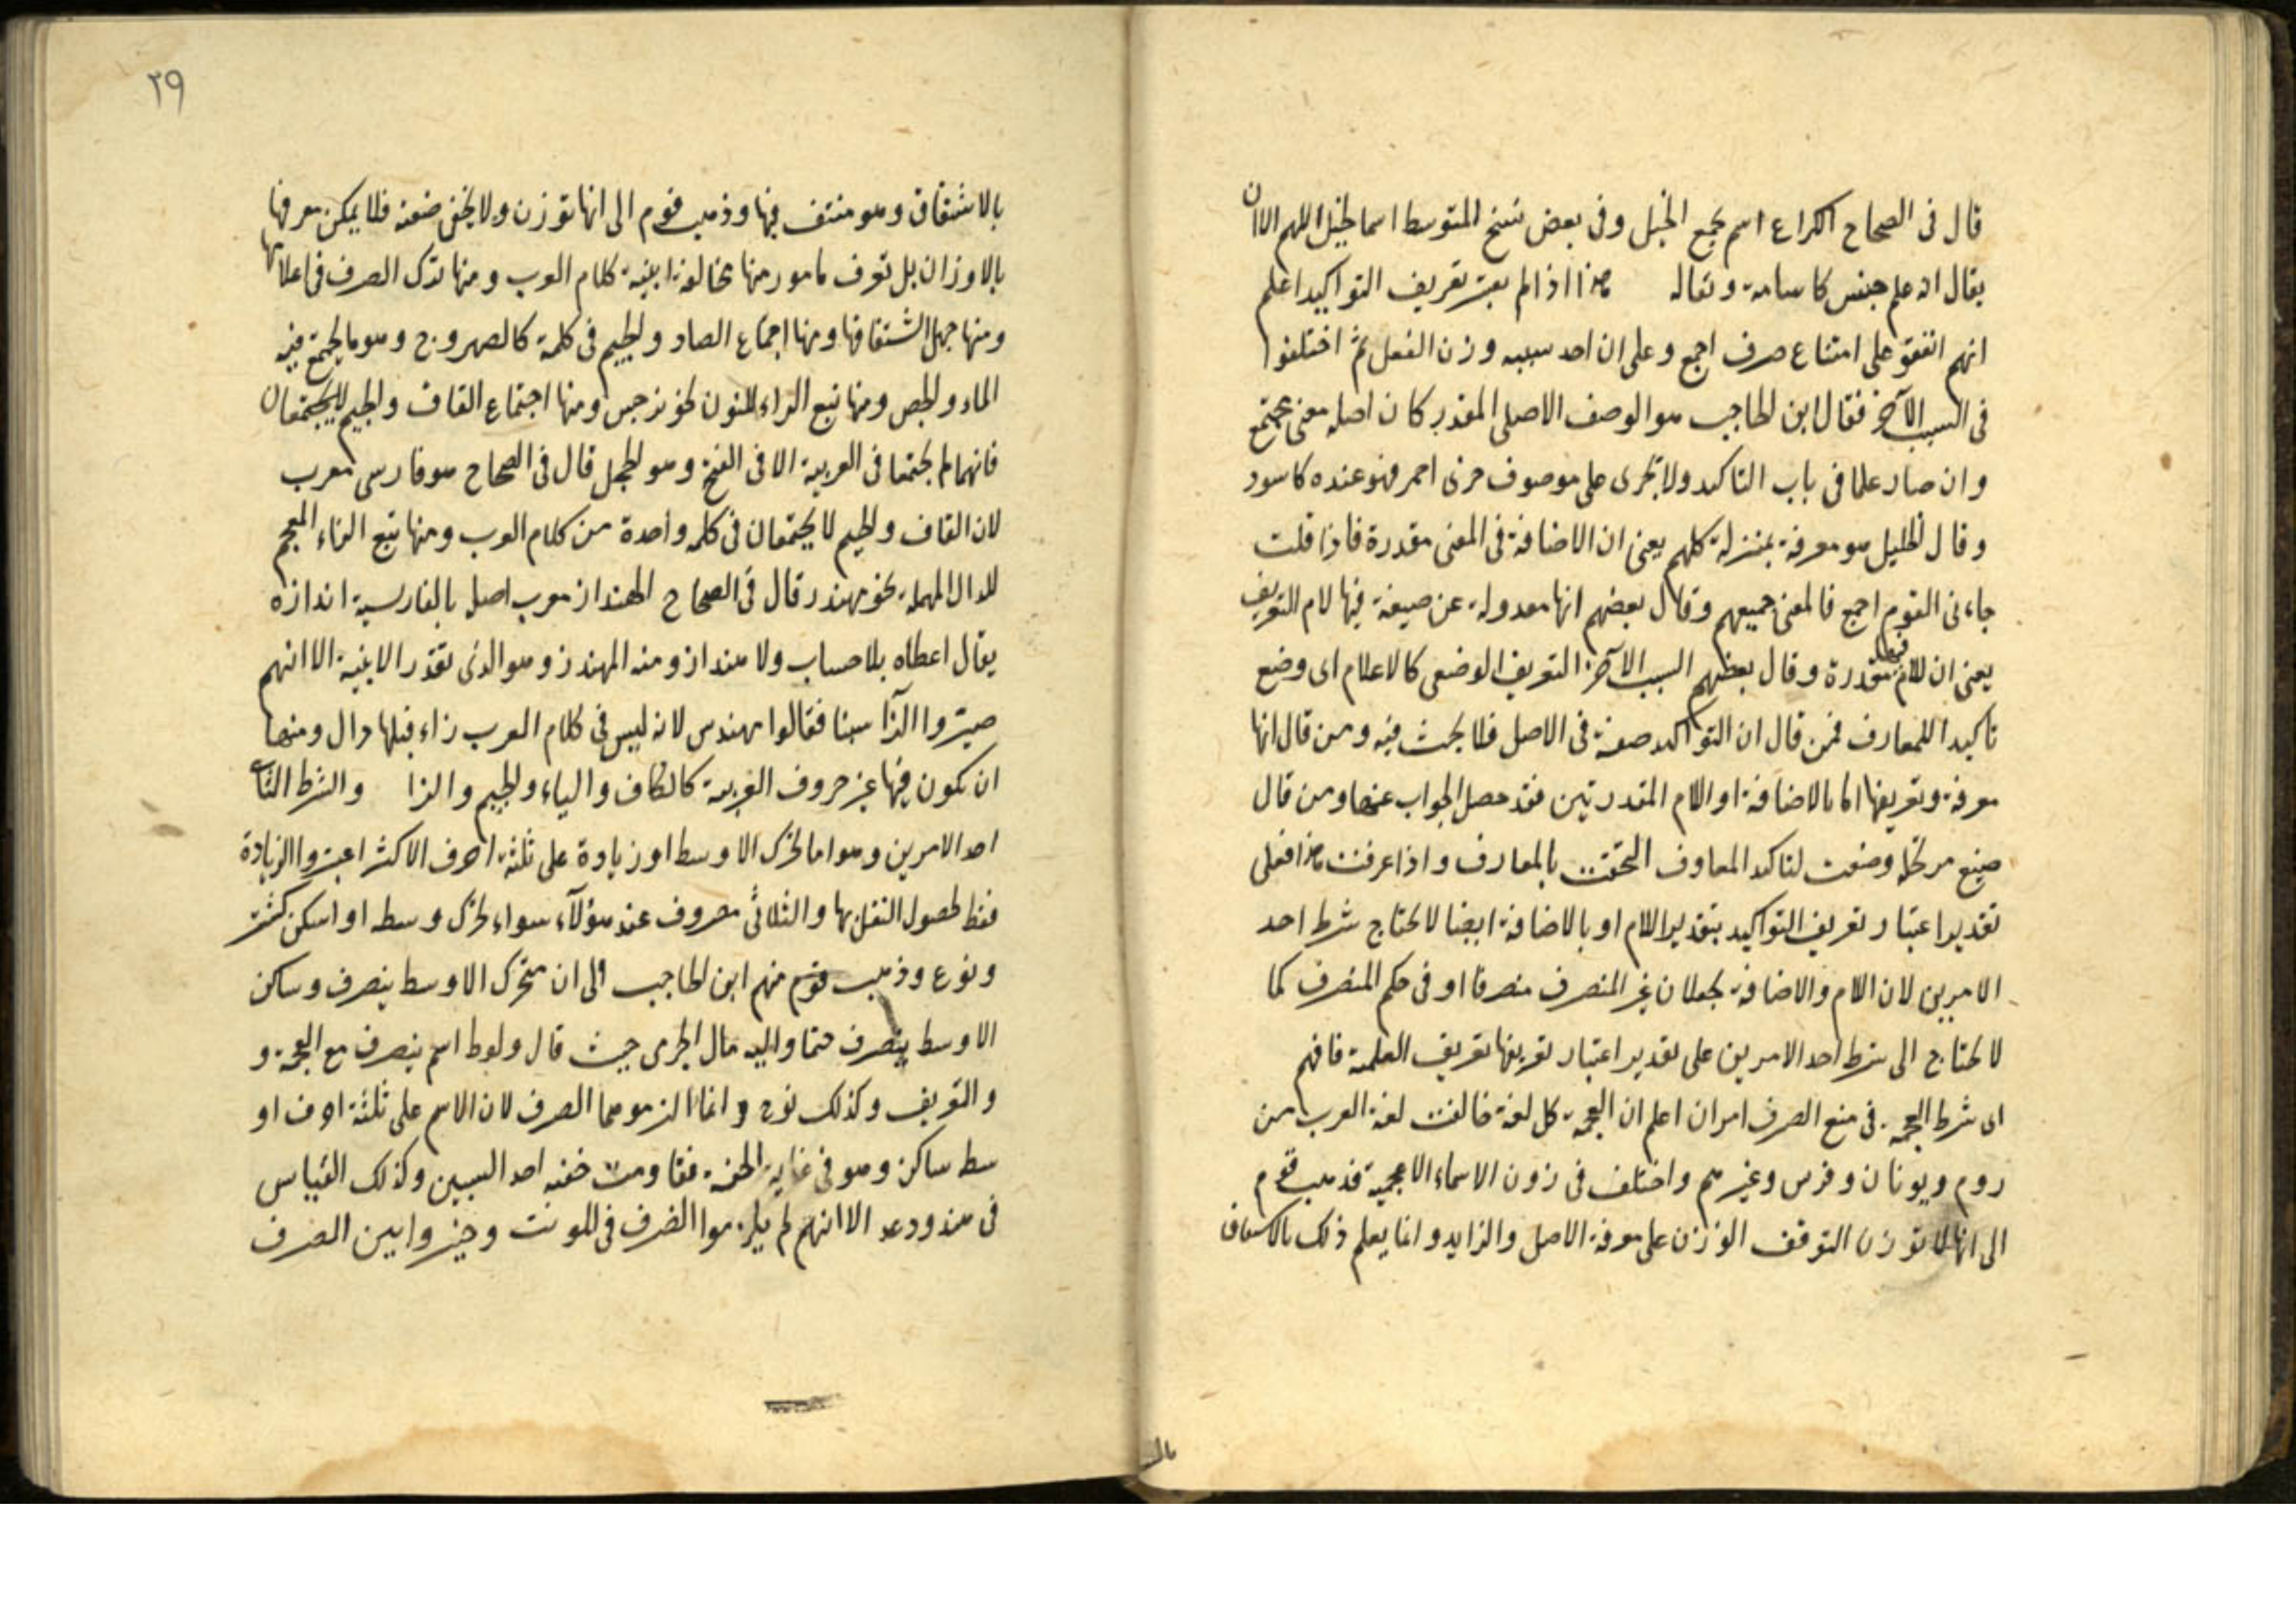 قال فى الصحاح الكراع اسم لجمع الخيل وفى بعض نسخ المتوسط اسما لخيل اللهم الا ان
يقال انه علم جنس كاسامة وثعالة هذا اذا لم يعتبر تعريف التواكيد اعلم
انهم اتفقوا على امتناع صرف اجمع وعلى ان احد سببيه وزن الفعل ثم اختلفوا
فى السبب الآخر فقال ابن الحاجب هو الوصف الاصلى المقدر كان اصله معنى مجتمع
وان صار علما فى باب التاكيد ولا يجرى على موصوف جرى احمر فهو عنده كاسود
وقال الخليل هو معرفة بمنزلة كلهم يعنى ان الاضافة فى المعنى مقدرة فاذا قلت
جاءنى القوم اجمع فالمعنى جميعهم وقال بعضهم انها معدولة عن صيغة فيها لام التعريف
يعنى ان اللام فيها مقدرة وقال بعضهم السبب الآخر التعريف الوضعى كالاعلام اى وضع
تاكيدا للمعارف فمن قال ان التواكيد صفة فى الاصل فلا بحث فيه ومن قال انها
معرفة وتعريفها اما بالاضافة او اللام المقدرتين فقد حصل الجواب عنها ومن قال
صيغ مرتجلة وضعت لتاكيد المعارف التحقت بالمعارف واذا عرفت هذا فعلى
تقدير اعتبار تعريف التواكيد بتقدير اللام او بالاضافة ايضا لا تحتاج شرط احد
الامرين لان اللام والاضافة يجعلان غير المنصرف منصرفا او فى حكم المنصرف كما
لا تحتاج الى شرط احد الامرين على تقدير اعتبار تعريفها تعريف العلمية فافهم
اى شرط العجمة فى منع الصرف امران اعلم ان العجمة كل لغة خالفت لغة العرب من
روم ويونان وفرس وغيرهم واختلف فى وزن الاسماء الاعجمية فذهب قوم
الى انها لا توزن لتوقف الوزن على معرفة الاصل والزايد وانما يعلم ذلك بالاشتقاق
٢٩
بالاشتقاق وهو منتف فيها وذهب قوم الى انها توزن ولا يخفى ضعفه فلا يمكن معرفتها
بالاوزان بل تعرف بامور منها مخالفة ابنية كلام العرب ومنها ترك الصرف فى اعلامها
ومنها جهل اشتقاقها ومنها اجتماع الصاد والجيم فى كلمة كالصهروج وهو ما يجتمع فيه
الماء والجص ومنها تبع الراء للنون نحو نرجس ومنها اجتماع القاف والجيم لا يجتمعان
فانهما لم يجتمعا فى العربية الا فى القبج وهو الحجل قال فى الصحاح هو فارسى معرب
لان القاف والجيم لا يجتمعان فى كلمة واحدة من كلام العرب ومنها تبع الزاء المعجم
للدال المهملة نحو مهندز قال فى الصحاح الهنداز معرب اصله بالفارسية اندازه
يقال اعطاه بلا حساب ولا هنداز ومنه المهندز وهو الذى يقدر الابنية الا انهم
صيروا الزا سينا فقالوا مهندس لانه ليس فى كلام العرب زاء قبلها دال ومنها
ان تكون فيها غير حروف العربية كالكاف والياء والجيم والزا والشرط الثانى
احد الامرين وهو اما تحرك الاوسط او زيادة على ثلثة احرف الاكثر اعتبروا الزيادة
فقط لحصول الثقل بها والثلاثى مصروف عند هؤلآء سواء تحرك وسطه او اسكن كشتر
ونوح وذهب قوم منهم ابن الحاجب الى ان متحرك الاوسط ينصرف وساكن
الاوسط ينصرف حتما واليه مال الجرمى حيث قال ولوط اسم ينصرف مع العجمة و
والتعريف وكذلك نوح وانما الزموهما الصرف لان الاسم على ثلثة احرف او
سط ساكن وهو فى غاية الخفة فقاومت خفته احد السببين وكذلك القياس
فى هند ودعد الا انهم لم يلزموا الصرف فى المونث وخيروا بين الصرف